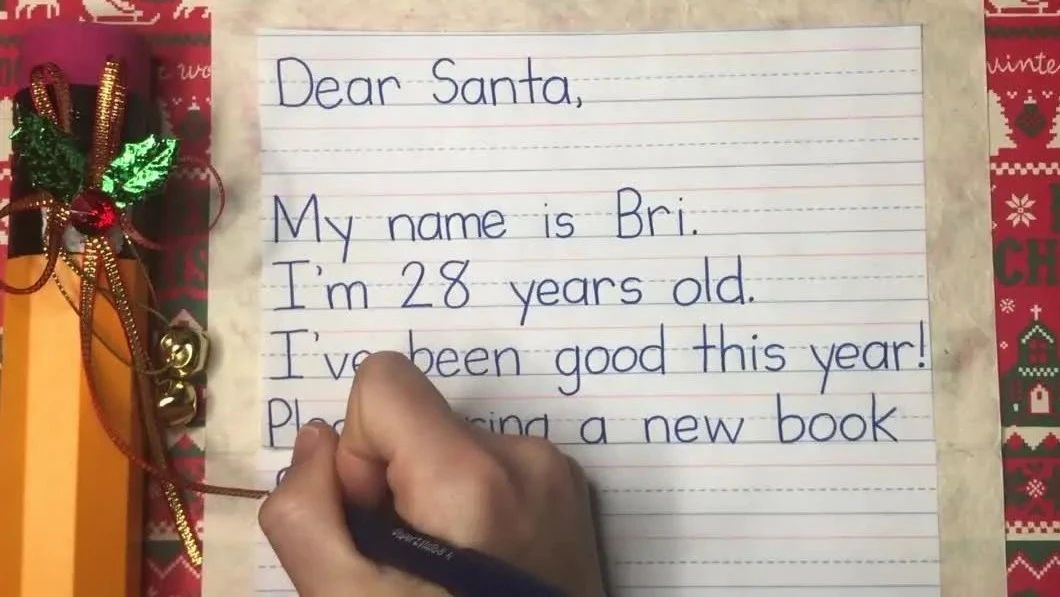 Dear Santa,
My name is Bri.
I'm 28 years old.
I've been good this year!
a new book